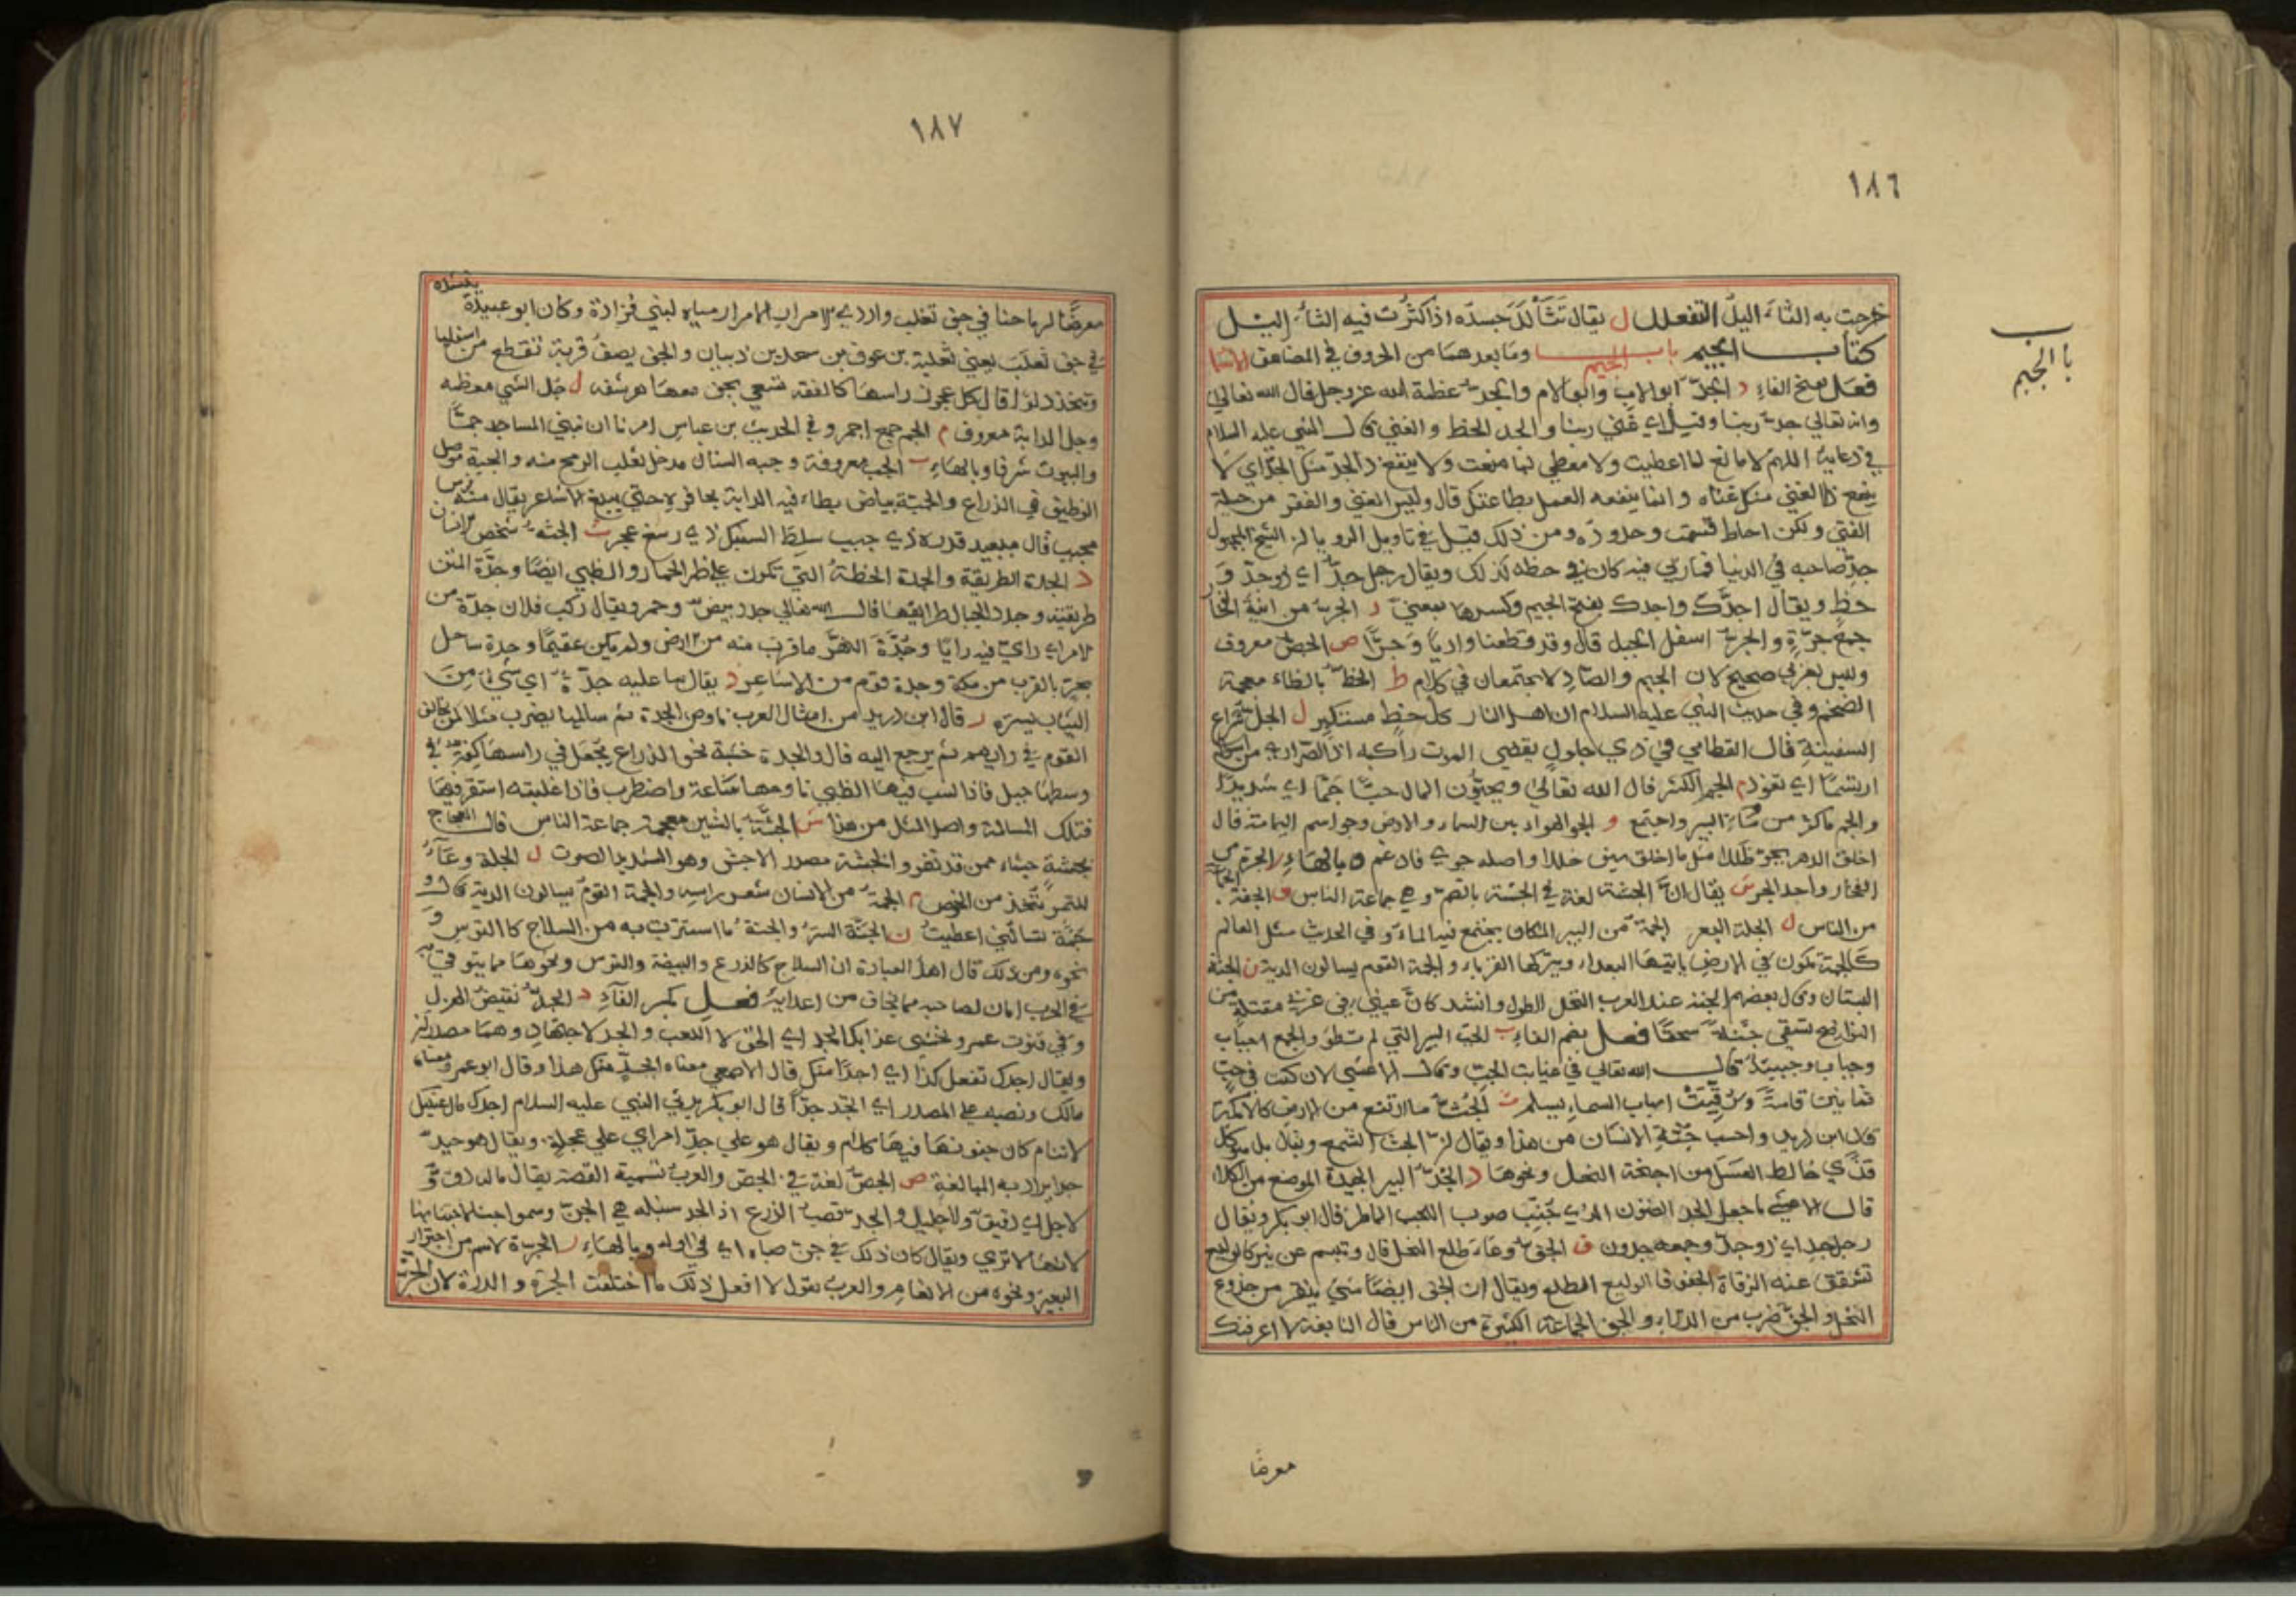 ١٨٦
باب
بالجيم
خرجت به الثآليل التفعلل ل يقال تثألل جسده اذا كثرت فيه الثآليل
كتاب الجيم باب الجيم وما بعدهما من الحروف في المضاعف الاسما
فعل بفتح الفاء د الجد ابو الاب وابو الام والجد عظمة الله عز وجل قال الله تعالى
وانه تعالى جد ربنا وقيل اي غني ربنا والجد الحظ والغني قال النبي عليه السلام
في دعايه اللهم لا مانع لما اعطيت ولا معطي لما منعت ولا ينفع ذا الجد منك الجد اي لا
ينفع ذا الغني منك غناه وانما ينفعه العمل بطاعتك قال وليس الغني والفقر من حيلة
الفتى ولكن احاط قسمت وحدود ومن ذلك قيل في تاويل الرويا ان الشيخ المجهول
جد صاحبه في الدنيا فما ري فيه كان في حظه كذلك ويقال رجل جد اي ذو جد و
حظ ويقال اجدك واجدك بفتح الجيم وكسرها بمعنى ر الجر من انية الفخار
جمع جرة والجر اسفل الجبل قال وقد قطعنا واديا وجرا ص الجص معروف
وليس بعربي صحيح لان الجيم والصاد لا يجتمعان في كلام ط الجظ بالظاء معجمة
الضخم وفي حديث النبي عليه السلام ان اهل النار كل جظ مستكبر ل الجل شراع
السفينة قال القطامي في ذي جلول يقضي الموت راكبه اذا الصراري من اهواله
ارتسما اي تعوذ م الجم الكثر قال الله تعالى ويحبون المال حبا جما اي شديدا
والجم ما كثر من ماء البير واجتمع و الجو الهواء بين السماء والارض وجو اسم اليمامة قال
اخلق الدهر بجو طللا مثل ما اخلق سيف خللا واصله جوي فادغم ه بالهاء ر الجرة من
الفخار واحد الجر ش يقال ان الجشة لغة في الجشة بالضم وهي جماعة الناس ف الجفة
من الناس ل الجلة البعر الجمة من البير المكان يجتمع فيه الماء وفي الحديث مثل العالم
كالجمة تكون في الارض ياتيها البعداء ويتركها القرباء والجمة القوم يسالون الدية ن الجنة
البستان وقال بعضهم الجنة عند العرب النخل الطول وانشد كان عيني في غربي مقتلة من
النواضح تسقي جنة سحقا فعل بضم الفاء ب الجب البير التي لم تطو والجمع اجباب
وجباب وجببة قال الله تعالى في غيابت الجب وقال الاعشى لان كنت في جب
ثمانين قامة ورقيت اسباب السماء بسلم ث الجث ما ارتفع من الارض كالاكمة
قال ابن دريد واحسب جثة الانسان من هذا ويقال ان الجث الشمع ويقال بل هو كل
قذي خالط العسل من اجنحة النحل ونحوها د الجد البير الجيدة الموضع من الكلاء
قال الاعشى ما جعل الجد الظنون الذي جنب صوب اللجب الماطر قال ابو بكر ويقال
رجل جد اي ذو جد وجمعه جدون ف الجف وعاء طلع النخل قال وتبسم عن نير كالوليع
تشقق عنه الرقاة الجفوفا الوليع الطلع ويقال ان الجف ايضا شي ينقر من جذوع
النخل والجف ضرب من الدلاء والجف الجماعة الكثيرة من الناس قال النابغة لا اعرفنك
معرضا
١٨٧
معرضا لرماحنا في جف تغلب واردي الامرار الامرار مياه لبني فزارة وكان ابو عبيدة ينشده
في جف ثعلب يعني ثعلبة بن عوف بن سعد بن ذبيان والجف نصف قربة تقطع من اسفلها
وتتخذ دلوا قال كل عجوز راسها كالقفه تسعي بجف معها هرشفه ل جل الشي معظمه
وجل الدابة معروف م الجم جمع اجم وفي الحديث بن عباس امرنا ان نبني المساجد جما
والبيوت شرفا وبالهاء ب الجبة معروفة وجبة السنان مدخل ثعلب الرمح منه والجبة موصل
الوظيف في الذراع والجبة بياض يطاء فيه الدابة بحافره حتى يبلغ الاشاعر يقال منه فرس
مجبب قال مبعيد قدره ذي جبب سلط السنبك ذي رسغ عجر ث الجثة شخص الانسان
د الجدة الطريقة والجدة الخطة التي تكون على ظهر الحمار والظبي ايضا وجدة المتن
طريقته وجدد الجبال طرايقها قال الله تعالى جدد بيض وحمر ويقال ركب فلان جدة من
الامر اي راي فيه رايا وجدة النهر ما قرب منه من الارض وجدة ساحل
بحر بالقرب من مكة وجدة قوم من الاشاعر ذ يقال ما عليه جذة اي شي من
الثياب يستره ر قال ابن دريد من امثال العرب ناوص الجرة ثم سالمها يضرب مثلا لمن يخالف
القوم في رايهم ثم يرجع اليه قال والجرة خشبة نحو الذراع يجعل في راسها كفة وفي
وسطها حبل فاذا نشب فيها الظبي ناوصها ساعة واضطرب فاذا غلبته استقر فيها
فتلك المسالمة واصل المثل من هذا ش الجشة بالشين معجمة جماعة الناس قال العجاج
بجشة جشاء ممن قد نفر والجشة مصدر الاجش وهو الشديد الصوت ل الجلة وعاء
للتمر يتخذ من الخوص م الجمة من الانسان شعر راسه والجمة القوم يسالون الدية قال و
جمة تسالني اعطيت ن الجنة السترة والجنة ما استترت به من السلاح كالترس و
نحوه ومن ذلك قال اهل العبارة ان السلاح كالدرع والبيضة والترس ونحوها مما يتوقى به
في الحرب امان لصاحبه مما يخاف من اعدايه فعل بكسر الفاء د الجد نقيض الهزل
وفي قنوت عمر ونخشى عذابك الجد اي الحق لا اللعب والجد الاجتهاد وهما مصدران
ويقال اجدك تفعل كذا اي اجدا منك قال الاصمعي معناه ابجد منك هذا وقال ابو عمرو معناه
مالك ونصبه على المصدر اي اتجد جدا قال ابو بكر يرثي النبي عليه السلام اجدك ما لعينك
لا تنام كان جفونها فيها كلام ويقال هو على جد امر اي على عجلة ويقال هو حيد
جدا يراد به المبالغة ص الجص لغة في الجص والعرب تسميه القصة يقال ماله دق و
لا جل اي دقيق ولا جليل والجل قصب الزرع اذا حصد سنبله ن الجن وسموا جنا لاجتنانها
لانها لا تري ويقال كان ذلك في جن صباه اي في اوله وبالهاء ر الجرة الاسم من اجترار
البعير ونحوه من الانعام والعرب تقول لا افعل ذلك ما اختلفت الجرة والدرة لان الجرة